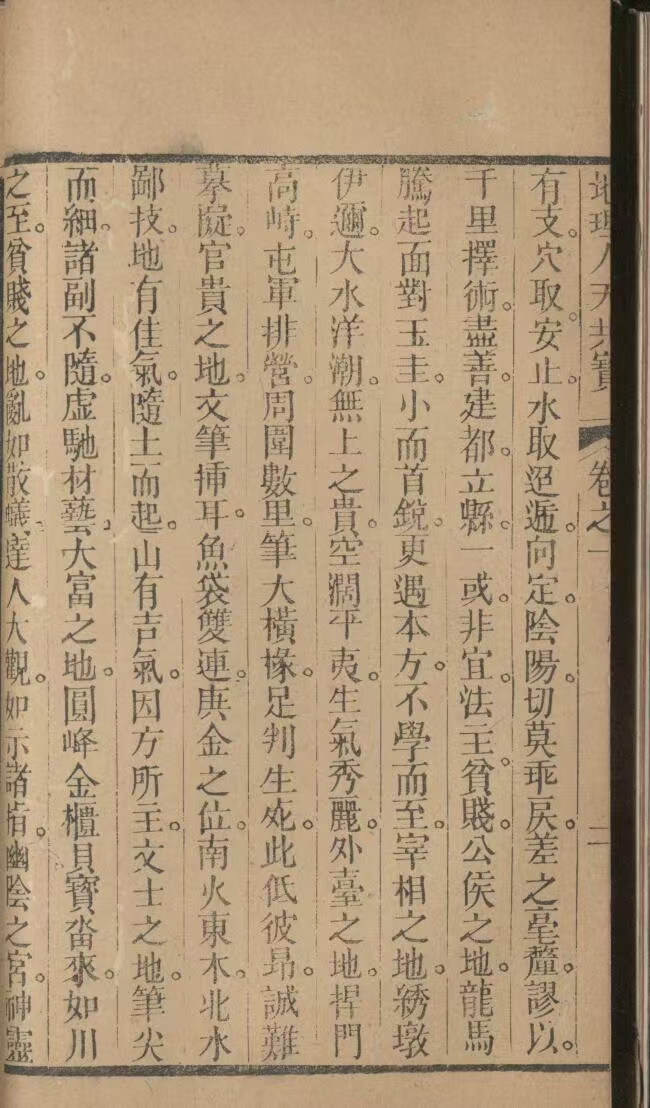 地理人天共寶 卷之一 二
有支。穴取安止。水取迢遞。向定陰陽。切莫乖戾。差之毫釐。謬以。
千里擇術。盡善。建都立縣。一或非宜。法主貧賤。公侯之地。龍馬
騰起。面對玉圭。小而首銳。更遇本方。不學而至。宰相之地。綉墩
伊邇。大水洋潮。無上之貴。空濶平夷。生氣秀麗。外臺之地。捍門
高峙。屯軍排營。周圍數里。筆大橫椽。足判生死。此低彼昂。誠難
摹擬。官貴之地。文筆揷耳。魚袋雙連。庚金之位。南火東木。北水
鄙技。地有佳氣。隨土而起。山有吉氣。因方所主。文士之地。筆尖
而細。諸副不隨。虛馳材藝。大富之地。圓峰金櫃。貝寶畓來。如川
之至。貧賤之地。亂如散蟻。達人大觀。如示諸指。幽陰之宮。神靈